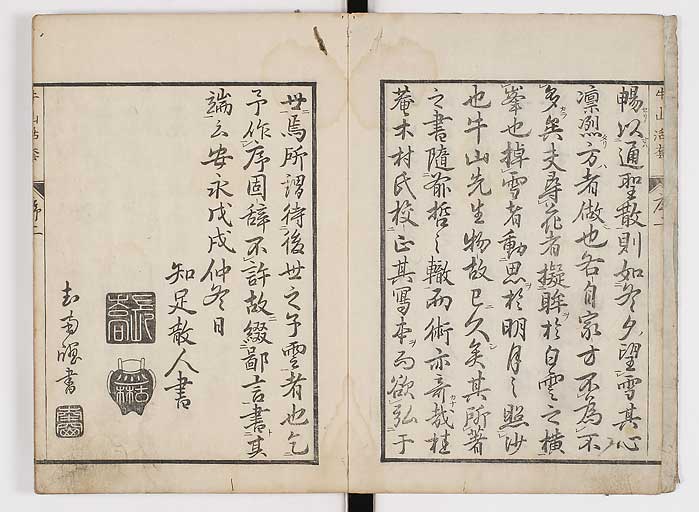 暢以通聖散則如冬夕望雪其心
凛烈方者做也各自家方不為不
多矣夫尋花者擬眸於白雲之横
峯也掉雪者動思於明月之照沙
也牛山先生物故已久矣其所著
之書隨前哲之轍而術亦奇哉桂
菴木村氏校正其寫本而欲弘于
世焉所謂待後世之子雲者也乞
予作序固辞不許故綴鄙言書其
端云安永戊戌仲冬日
知足散人書
書
牛山活套
序二